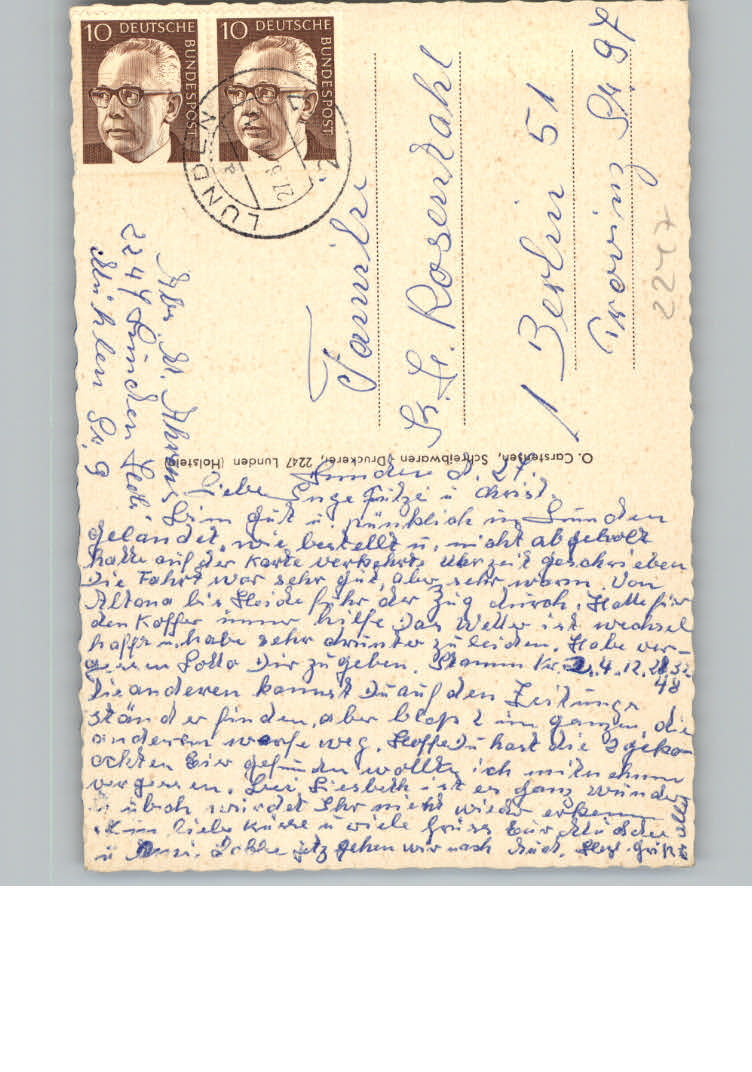 10 DEUTSCHE BUNDESPOST
10 DEUTSCHE BUNDESPOST
LUNDEN
27
Abs. M. Ahrens
2247 Lunden Holst.
Mühlen Str. 9
Familie
Fr. H. Rosendahl
1 Berlin 51
Provinz Str. 97
2247
O. Carstensen, Schreibwaren - Druckerei, 2247 Lunden (Holstein)
Lunden d. 27.
Liebe Inge u Christ.
Bin gut u. pünktlich in Lunden
gelandet, wie bestellt u. nicht abgeholt
hatte auf der Karte verkehrte Uhrzeit geschrieben
Die Fahrt war sehr gut, aber sehr warm. Von
Altona bis Heide fuhr der Zug durch. Hatte für
den Koffer immer hilfe. Das Wetter ist wechsel
haft u. habe sehr drunter zu leiden. Habe ver-
gessen Lotto Dir zu geben. Stamm Nr. 2, 4. 12. 32
48
Die anderen kannst Du auf den Zeitungs
ständer finden, aber bloß 2 im ganzen, die
anderen werfe weg. Hoffe Du hast die 3 geko-
chten Eier gefunden wollte ich mitnehmen
vergessen. Bei Liesbeth ist es ganz wunder
werdet Ihr nicht wieder erkennen
liebe Küsse u viele Grüsse
u jetz gehen wir nach Herzl. Grüße